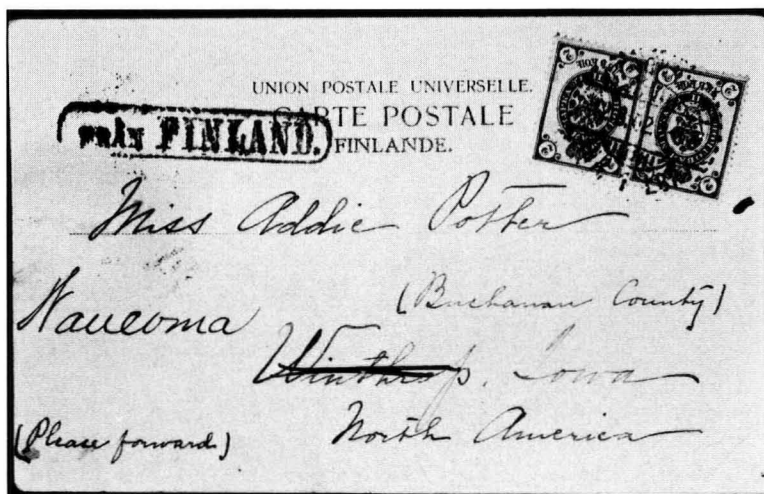 UNION POSTALE UNIVERSELLE.
CARTE POSTALE
FRÅN FINLAND.
FINLANDE.
Miss Addie Potter
(Buchanan County)
Waucoma
Winthrop, Iowa
North America
(Please forward)